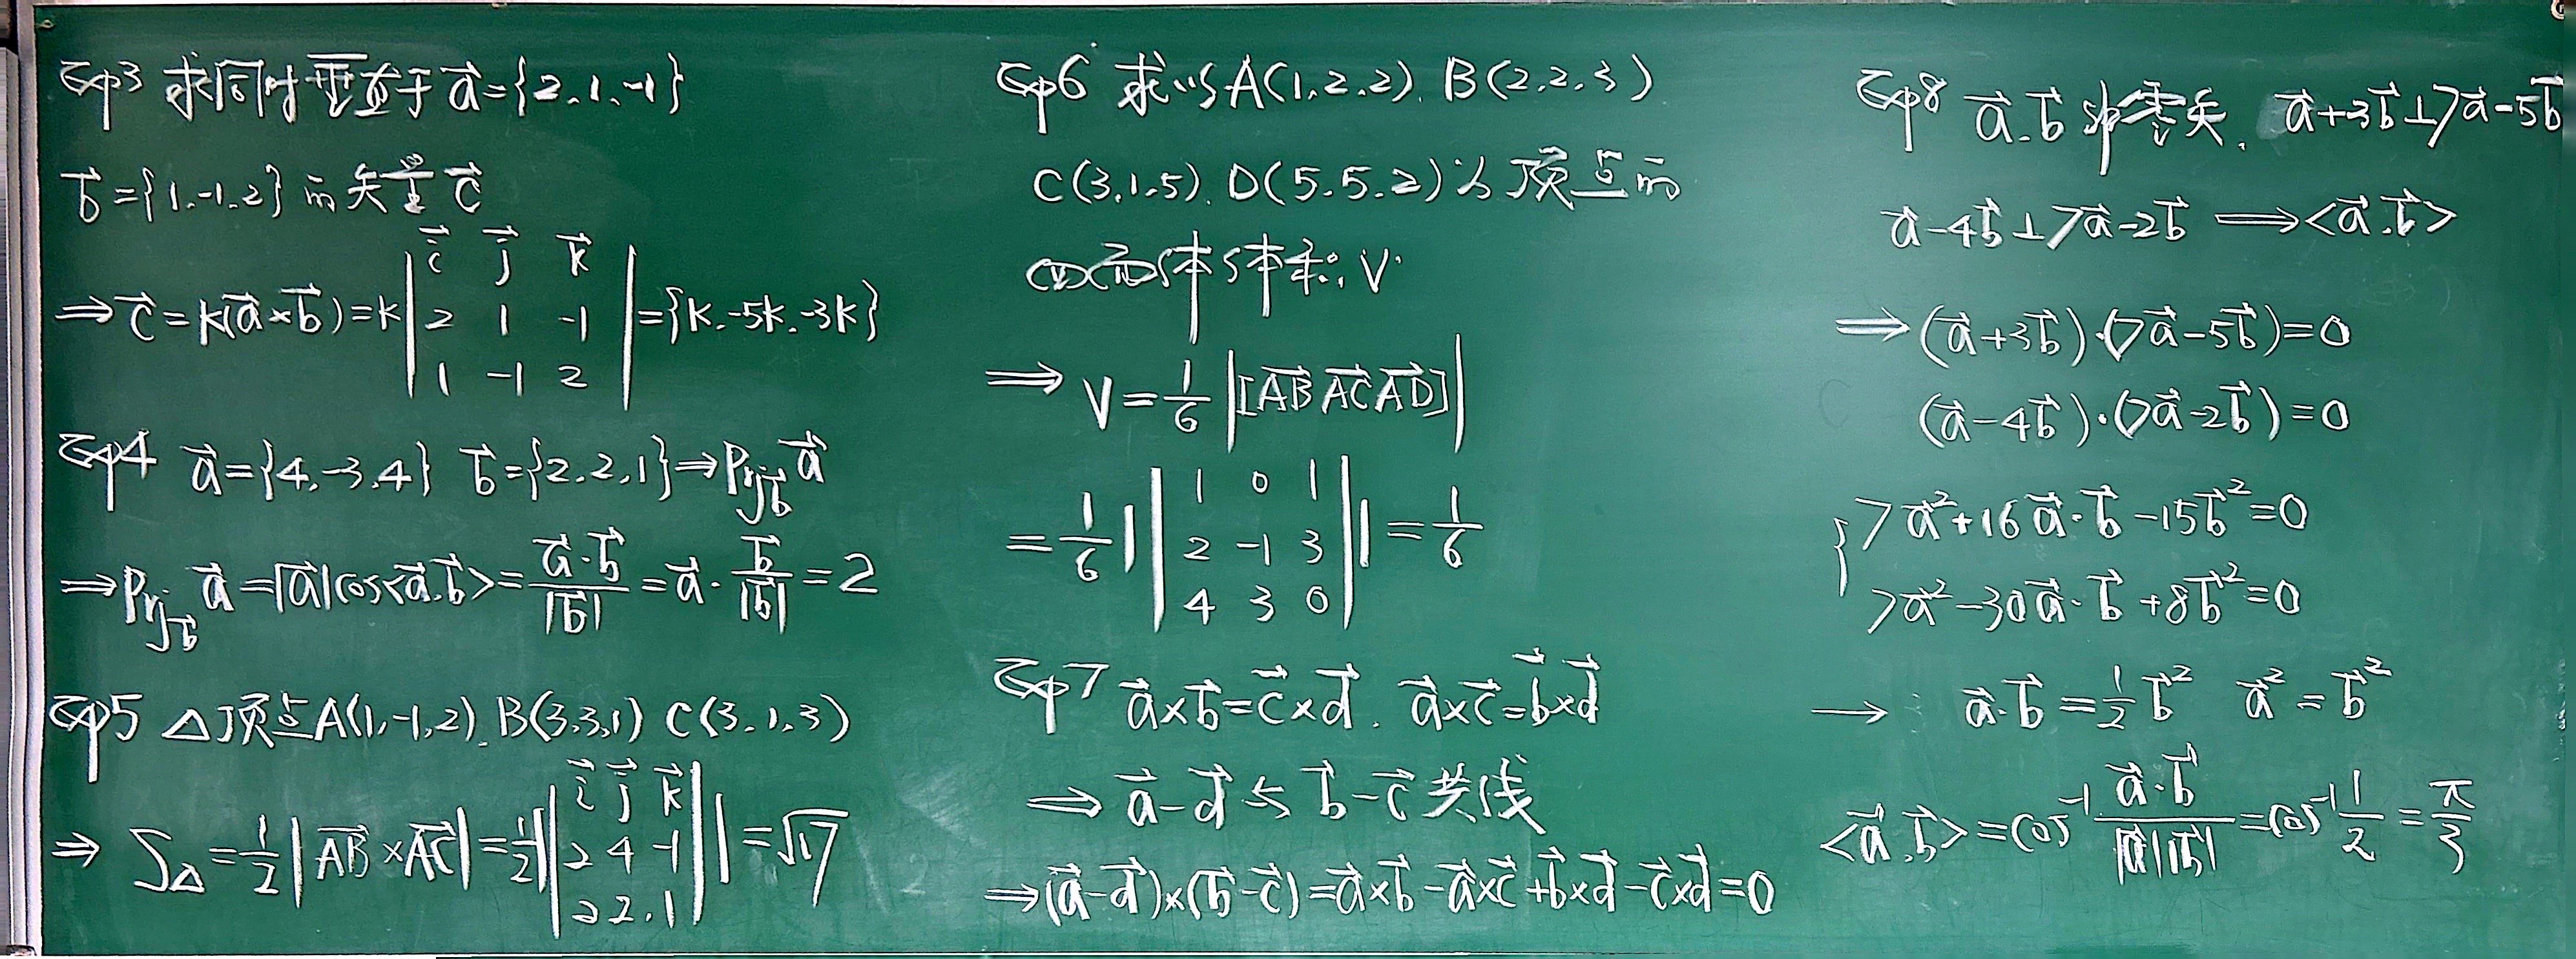 Exp3 求同时垂直于 a⃗={2,1,-1}
b⃗={1,-1,2}的矢量 c⃗
⇒ c⃗=k(a⃗×b⃗)=k| i⃗ j⃗ k⃗ |={k,-5k,-3k}
2 1 -1
1 -1 2
Exp4 a⃗={4,-3,4} b⃗={2,2,1}⇒Prj_b⃗ a⃗
⇒Prj_b⃗ a⃗=|a⃗|cos<a⃗,b⃗>=a⃗·b⃗/|b⃗|=a⃗·b⃗/|b⃗|=2
Exp5 △顶点A(1,-1,2),B(3,3,1) C(3,1,3)
⇒ S△=1/2|AB×AC|=1/2|| i⃗ j⃗ k⃗ ||=√17
2 4 -1
2 2 1
Exp6 求以A(1,2,2),B(2,2,3)
C(3,1,5),D(5,5,2)为顶点的
四面体体积V
⇒ V=1/6|[AB AC AD]|
=1/6|| 1 0 1 ||=1/6
2 -1 3
4 3 0
Exp7 a⃗×b⃗=c⃗×d⃗, a⃗×c⃗=b⃗×d⃗
⇒ a⃗-d⃗与b⃗-c⃗共线
⇒(a⃗-d⃗)×(b⃗-c⃗)=a⃗×b⃗-a⃗×c⃗+b⃗×d⃗-c⃗×d⃗=0
Exp8 a⃗,b⃗非零矢, a⃗+3b⃗⊥7a⃗-5b⃗
a⃗-4b⃗⊥7a⃗-2b⃗ ⇒<a⃗,b⃗>
⇒(a⃗+3b⃗)·(7a⃗-5b⃗)=0
(a⃗-4b⃗)·(7a⃗-2b⃗)=0
{7a⃗²+16a⃗·b⃗-15b⃗²=0
7a⃗²-30a⃗·b⃗+8b⃗²=0
→ a⃗·b⃗=1/2b⃗² a⃗²=b⃗²
<a⃗,b⃗>=cos⁻¹ a⃗·b⃗/|a⃗||b⃗|=cos⁻¹ 1/2=π/3